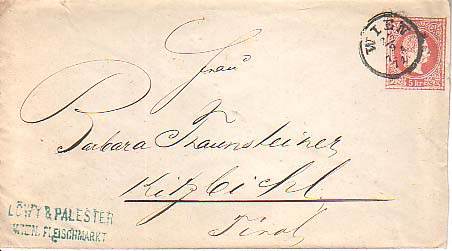 WIEN
5 kreuz
Frau
Barbara Traunsteiner,
Kitzbichl
Tirol,
LÖWY & PALESTER
WIEN, FLEISCHMARKT